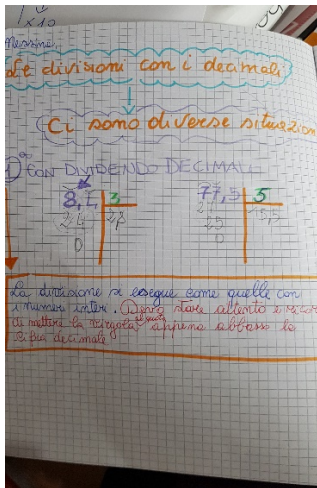 x10
Messina,
Le divisioni con i decimali
Ci sono diverse situazion
1) CON DIVIDENDO DECIMALE
8,4 3
24 2,8
0
77,5 5
27 15,5
25
0
La divisione si esegue come quelle con
i numeri interi. Devo stare attento e ricor
di mettere la virgola al quoto appena abbasso la
cifra decimale